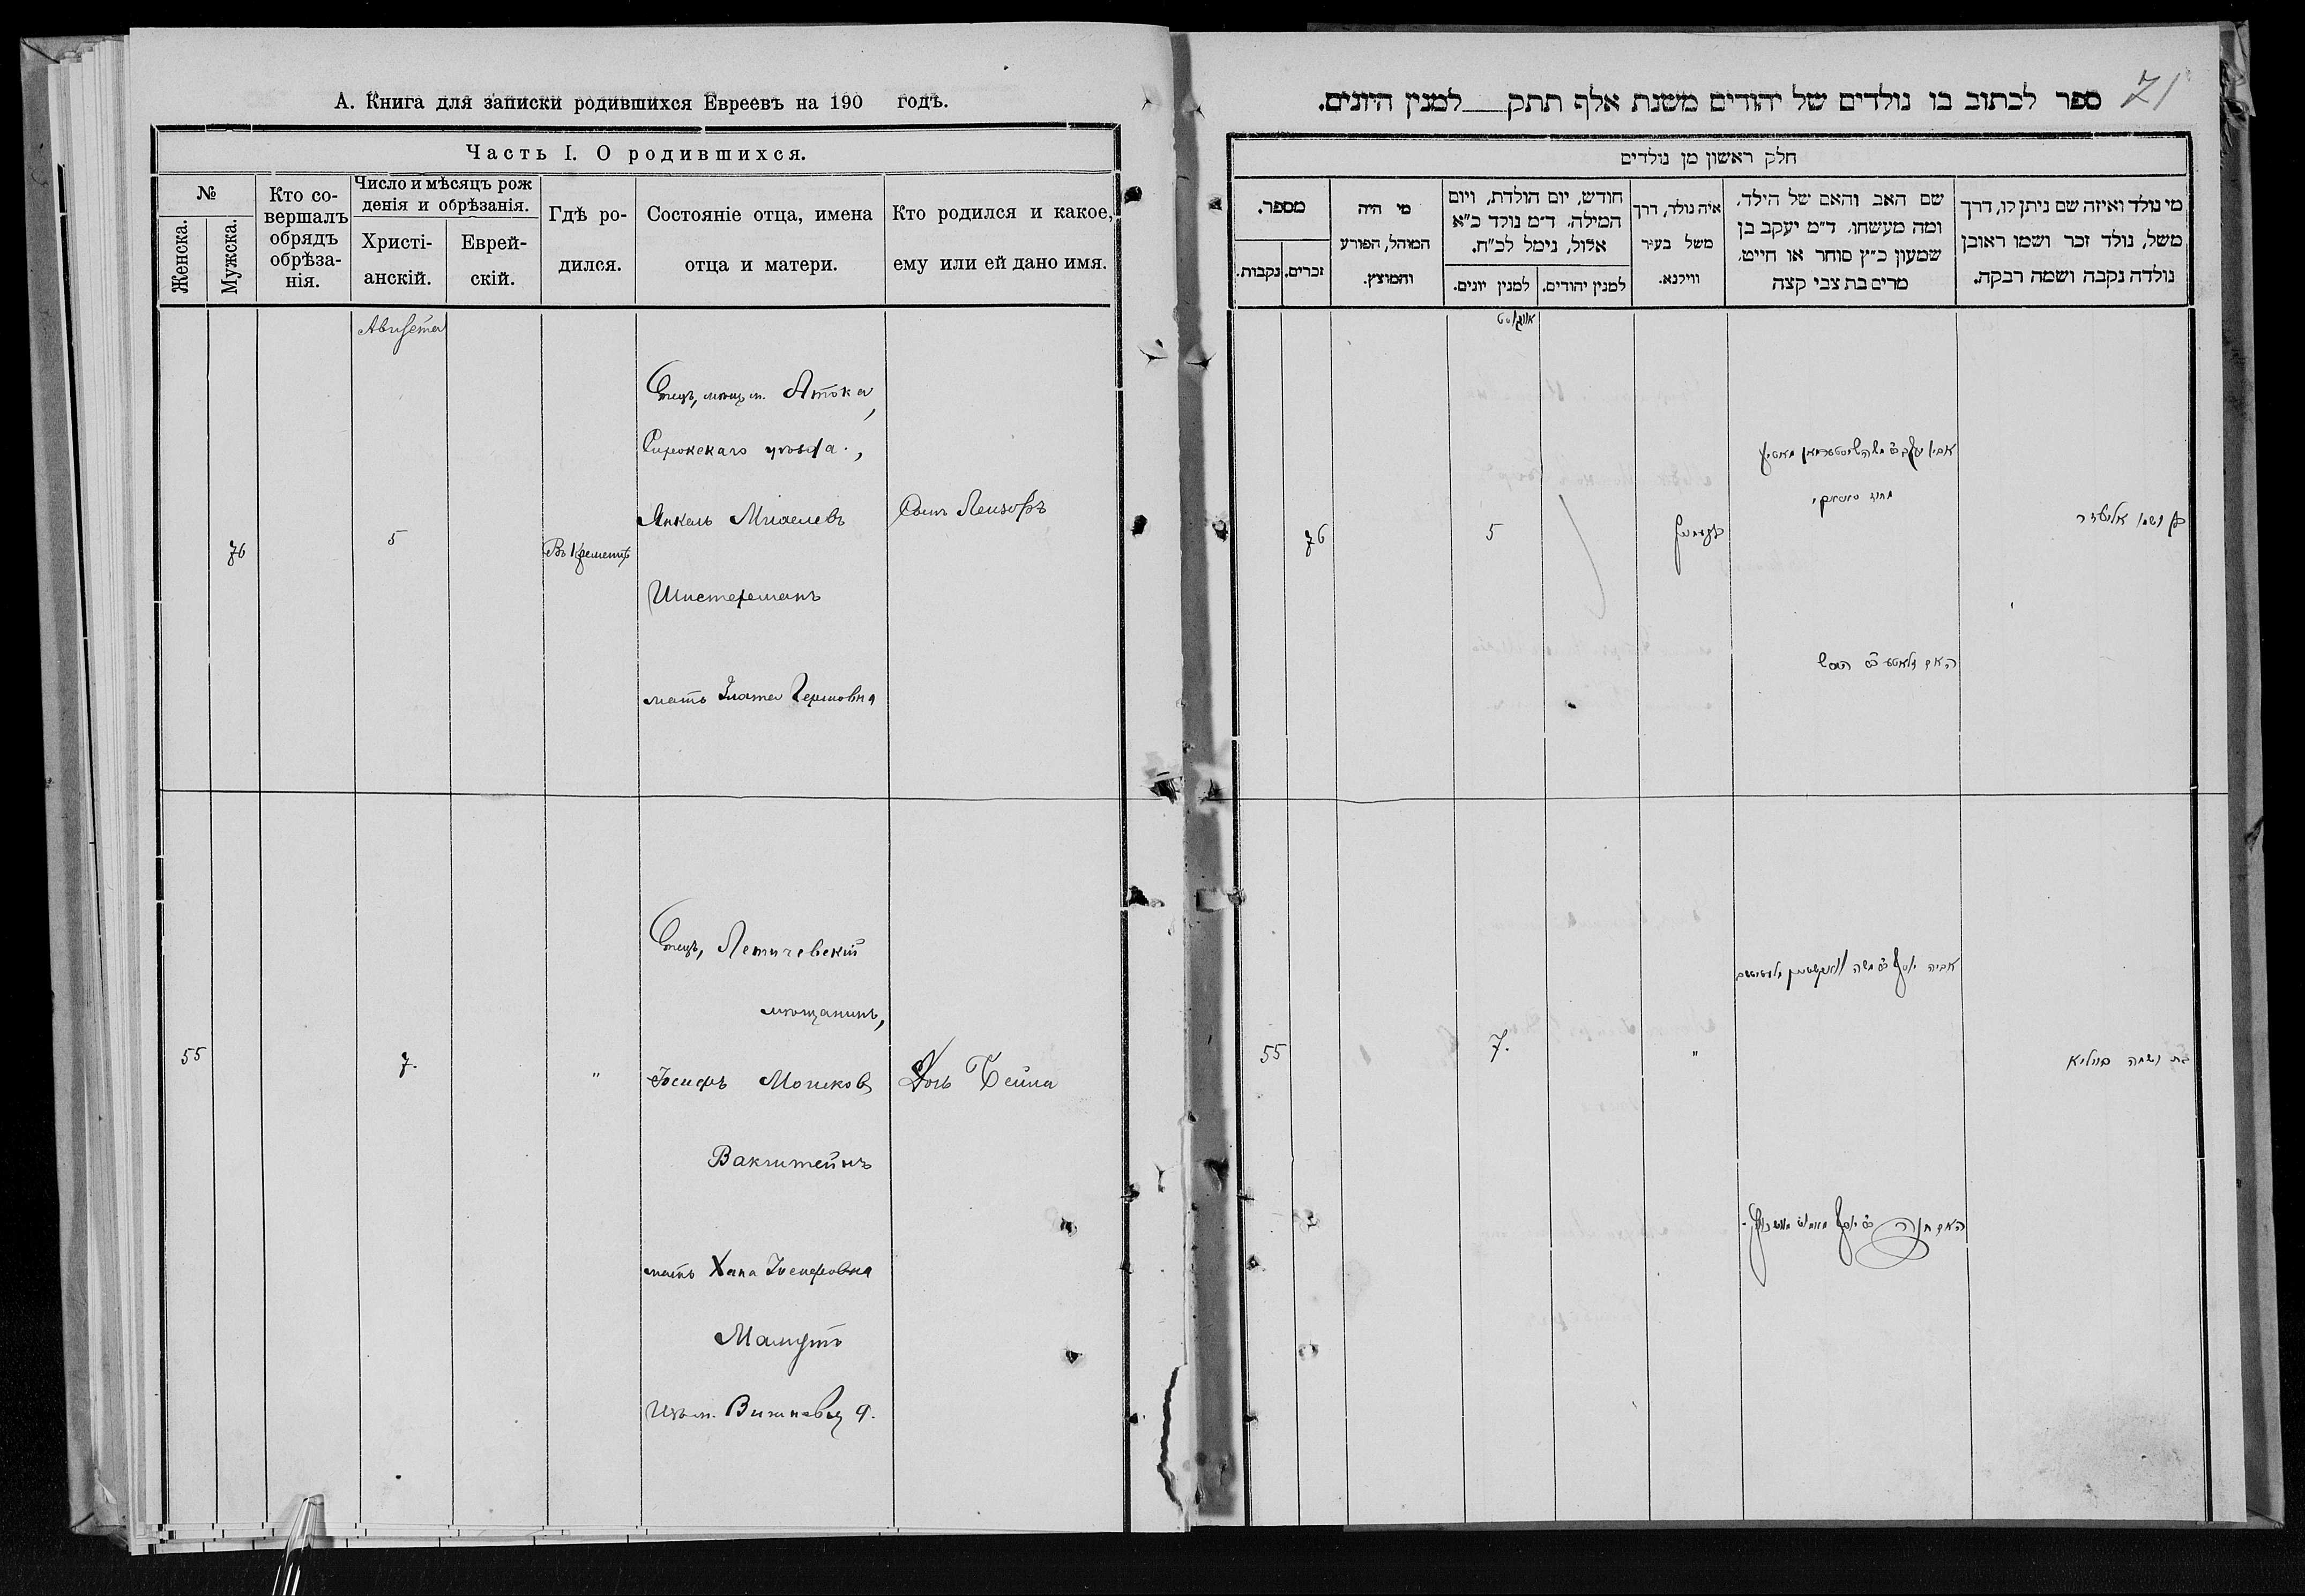 А. Книга для записки родившихся Евреевъ на 190 годъ.
Часть I. О родившихся.
№
Женска.
Мужска.
Кто со-
вершалъ
обрядъ
обрѣза-
нія.
Число и мѣсяцъ рож
денія и обрѣзанія.
Христі-
анскій.
Еврей-
скій.
Гдѣ ро-
дился.
Состояніе отца, имена
отца и матери.
Кто родился и какое,
ему или ей дано имя.
Августа
Отецъ, мѣщ. м. Ятока,
уѣзда.,
76
5
Въ Кременцѣ
Янкель
Сынъ Лейзоръ
Шистерманъ
мать Злата Гершовна
Отецъ, Летичевскій
мѣщанинъ,
55
7.
"
Іосифъ Мошковъ
Дочь Бейла
Вакштейнъ
мать Хана Іосифовна
Маламутъ
изъ м. Вишневца
71
ספר לכתוב בו נולדים של יהודים משנת אלף תתק למנין היונים.
חלק ראשון מן נולדים
מספר.
זכרים.
נקבות.
מי היה
המוהל, הפורע
והמוצץ.
חודש, יום הולדת, ויום
המילה. ד״מ נולד כ״א
אלול, נימל לכ״ח.
למנין יונים.
למנין יהודים.
איה נולד, דרך
משל בעיר
ווילנא.
שם האב והאם של הילד,
ומה מעשהו. ד״מ יעקב בן
שמעון כ״ץ סוחר או חייט,
מרים בת צבי קצה
מי נולד ואיזה שם ניתן לו, דרך
משל, נולד זכר ושמו ראובן
נולדה נקבה ושמה רבקה.
אויגוסט
76
5
בן ושמו אליעזר
האם זלאטע
55
7.
"
אביה יוסף משה
בת ושמה ביילא
האם חנה יוסף